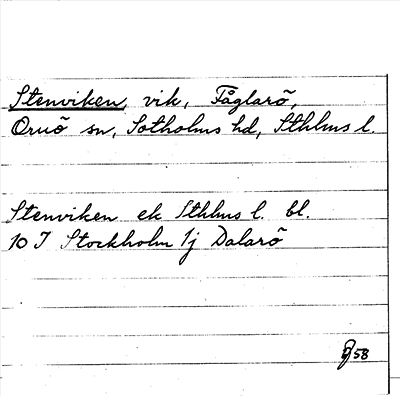 Stenviken, vik, Fåglarö,
Ornö sn, Sotholms hd, Sthlms l.
Stenviken ek Sthlms l. bl.
10 I Stockholm 1j Dalarö
58